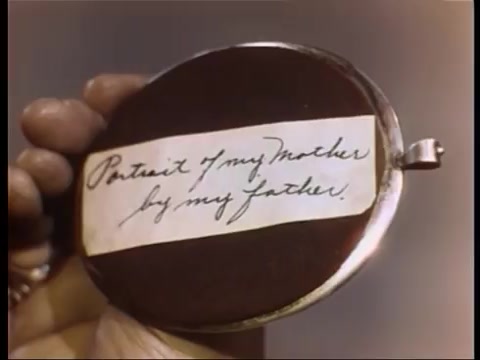 Portrait of my Mother
by my father.